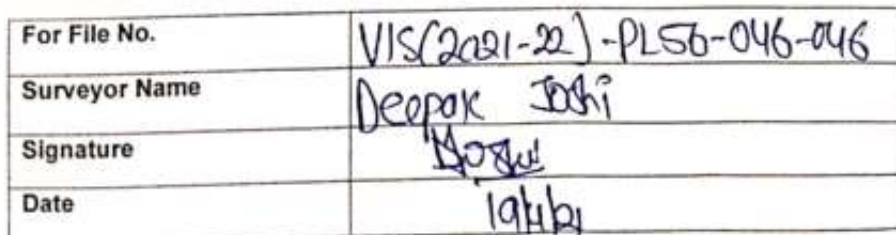 For File No. VIS(2021-22)-PL56-046-046
Surveyor Name Deepak Joshi
Signature
Date